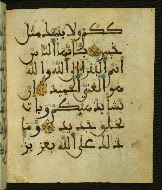 ككم ولا ينبئك مثل
خبير يأيها الناس
أنتم الفقراء إلى الله والله
هو الغني الحميد إن
يشأ يذهبكم ويأت
بخلق جديد وما
ذلك على الله بعزيز